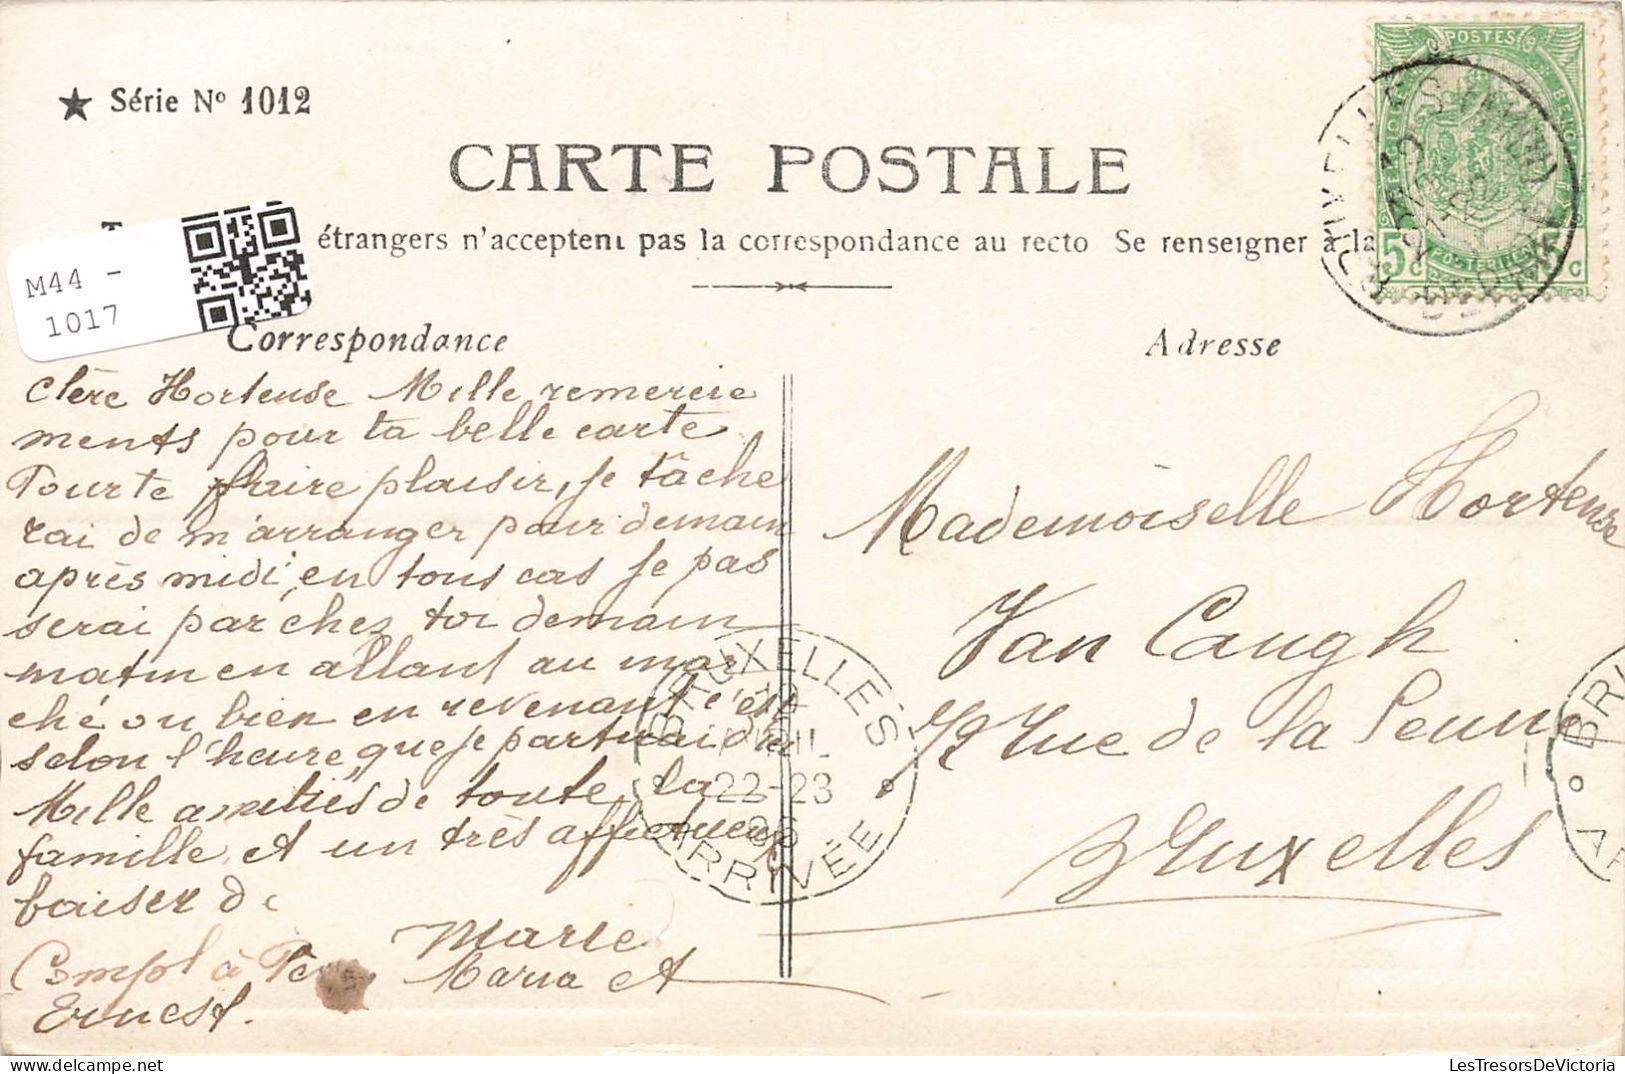 ★ Série Nº 1012
CARTE POSTALE
étrangers n'acceptent pas la correspondance au recto Se renseigner à la
M44 -
1017
POSTES
5c 5c
Correspondance
Adresse
Chère Hortense Mille remercie
ments pour ta belle carte
Pour te faire plaisir, je tâche
rai de m'arranger pour demain
après midi, en tous cas je pas
serai par chez toi demain
matin en allant au mar
ché ou bien en revenant c'est
selon l'heure que je partirai d'ici
Mille amitiés de toute la
famille et un très affectueux
baiser de
Marie
Compl à Père Maria et
Ernest.
Mademoiselle Hortense
Van Caugh
Rue de la Senne
Bruxelles
BRUXELLES
19
AVRIL
22-23
06
ARRIVÉE
LesTresorsDeVictoria.com